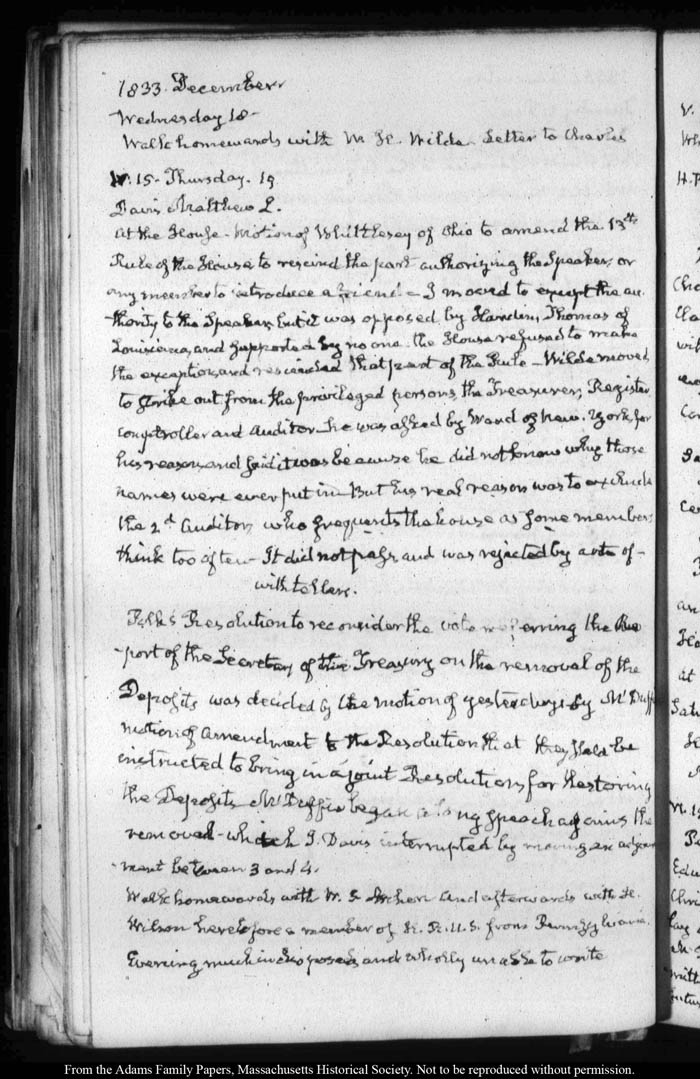 1833. December
Wednesday 18-
Walk homewards with W. R. Wilde. Letter to Charles
IV. 15. Thursday. 19
Davis Matthew L.
At the House - Motion of Whittlesey of Ohio to amend the 13th
Rule of the House to rescind the part authorizing the Speaker, or
any member to introduce a friend - I moved to except the au-
thority to the Speaker, but it was opposed by Hardin, Thomas of
Louisiana, and supported by no one. the House refused to make
the exception, and rescinded that part of the Rule - Wilde moved
to strike out from the privileged persons, the Treasurer, Register
comptroller and Auditor he was asked by Ward of New-York for
his reasons, and said it was because he did not know why those
names were ever put in - But his real reason was to exclude
the 2d Auditor, who frequents the house as some members
think too often - It did not pass, and was rejected by a vote of -
with tellers.
Polk's Resolution to reconsider the vote referring the Re
port of the Secretary of the Treasury on the removal of the
Deposits was decided by the motion of yesterday by McDuff
motion of amendment to the Resolution that they shall be
instructed to bring in a joint Resolution for Restoring
the Deposits McDuffie began a long speech against the
removal - which J. Davis interrupted by moving an adjourn
ment between 3 and 4.
Walk homewards with W. S. Archer and afterwards with H.
Wilson heretofore a member of H. R. U. S. from Pennsylvania.
Evening much indisposed and wholly unable to write
V.
H. P
From the Adams Family Papers, Massachusetts Historical Society. Not to be reproduced without permission.